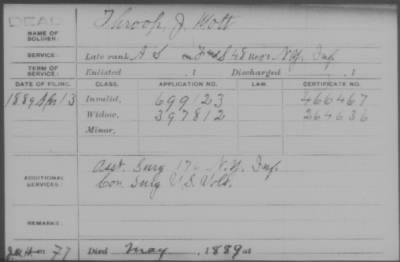 DEAD
NAME OF SOLDIER: Throop, J. Mott
SERVICE: Late rank, A S F & S 48 Reg't N.Y. Inf
TERM OF SERVICE: Enlisted , 1 Discharged , 1
DATE OF FILING. CLASS. APPLICATION NO. LAW. CERTIFICATE NO.
1889 Apr 13 Invalid, 699123 466467
Widow, 397812 264636
Minor,
ADDITIONAL SERVICES: Asst. Surg 176 N.Y. Inf.
Con Surg U.S. Vols.
REMARKS:
77 Died May , 1889 at